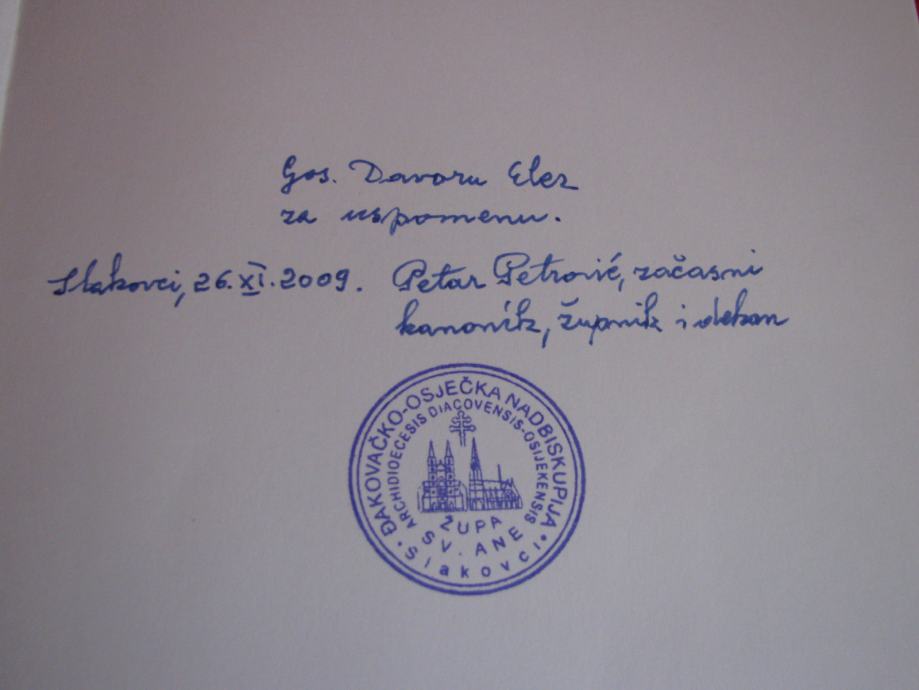 Gos. Davoru Elez
za uspomenu.
Slakovci, 26.XI.2009. Petar Petrović, začasni
kanonik, župnik i dekan
ĐAKOVAČKO-OSJEČKA NADBISKUPIJA
ARCHIDIOECESIS DIACOVENSIS-OSIJEKENSIS
ŽUPA
SV. ANE
Slakovci